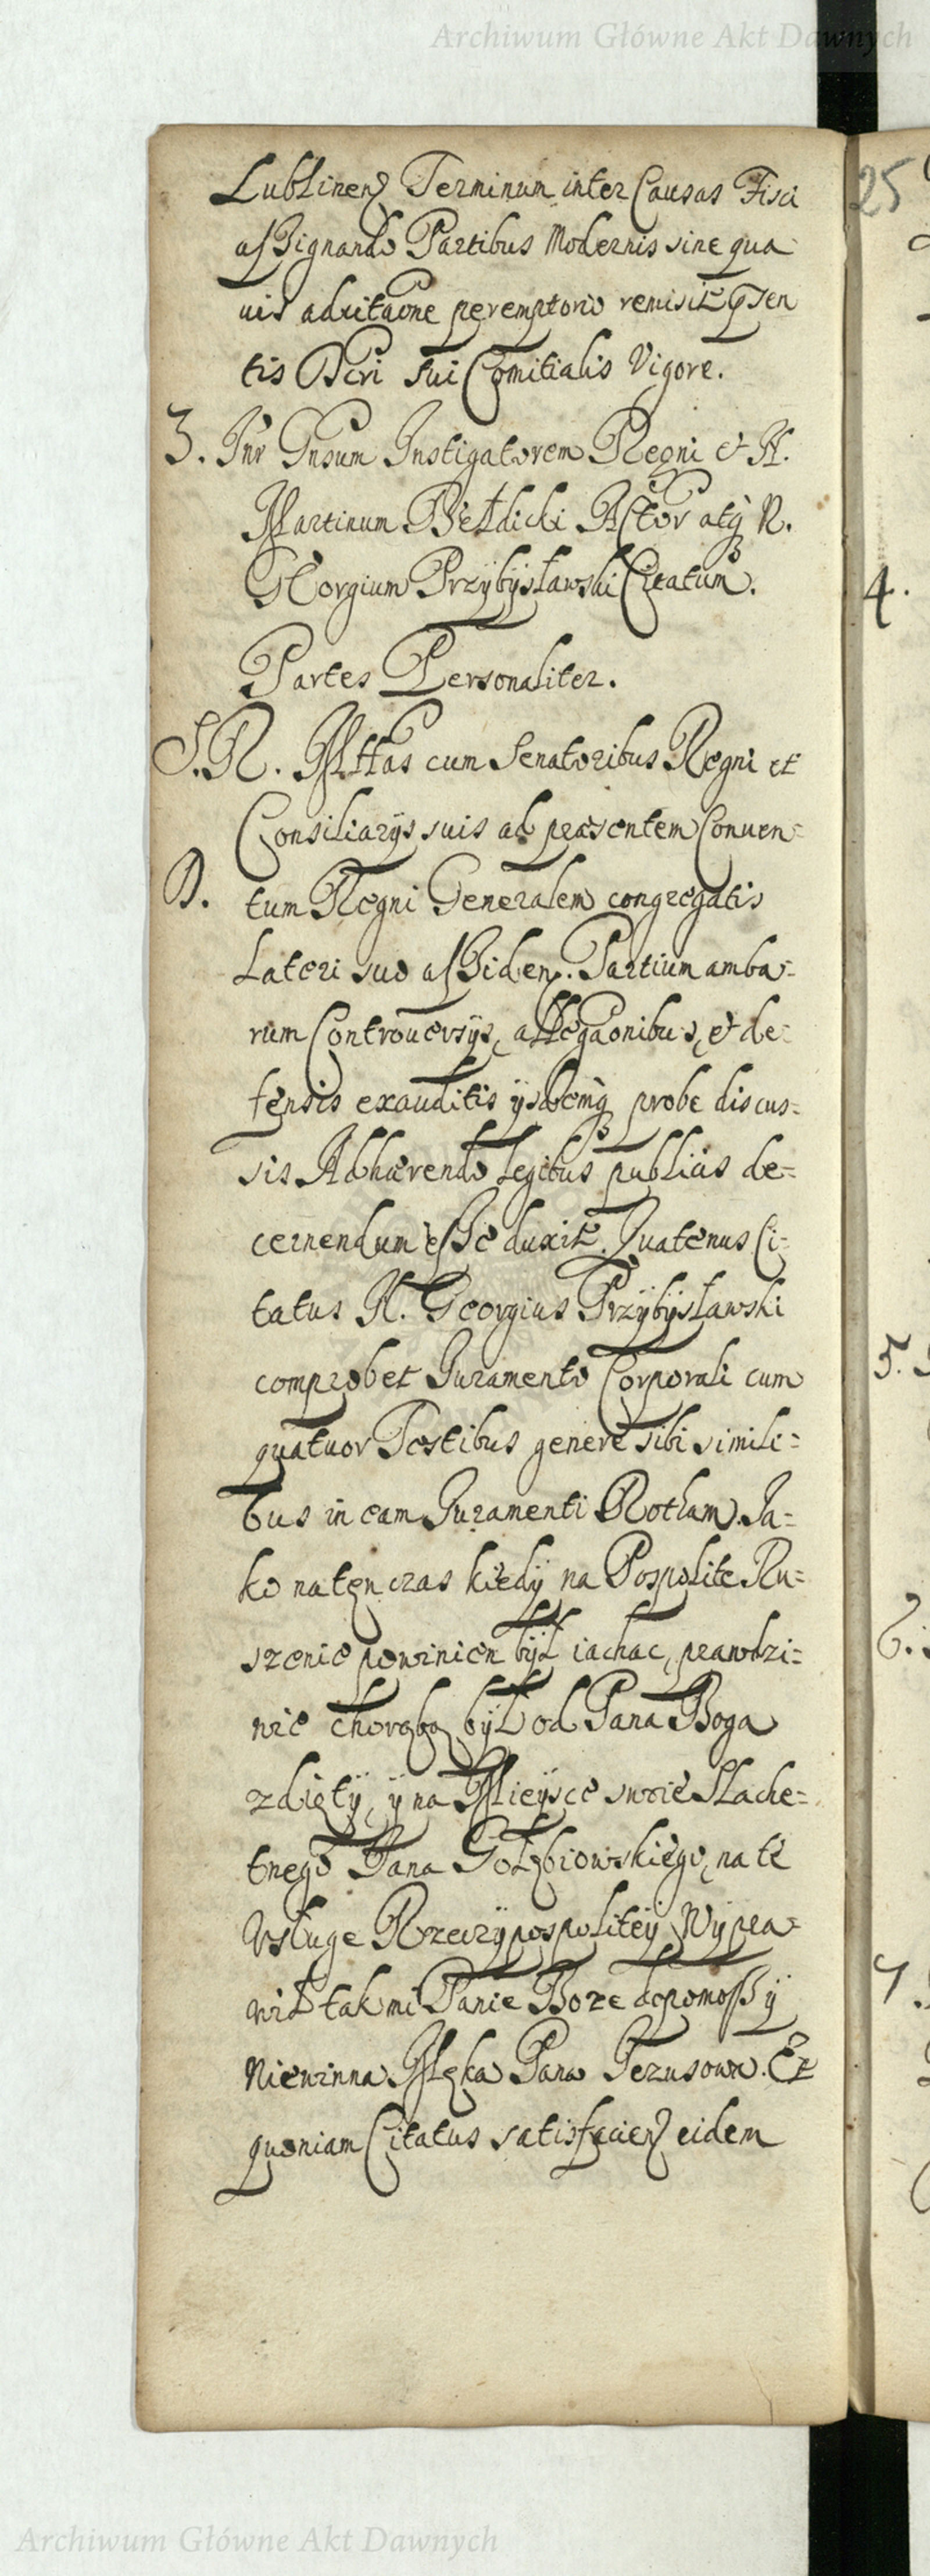 Archiwum Główne Akt Dawnych
Lublinen Terminum inter Causas Fisci
assignando Partibus Modernis sine qua
vis adcitaone peremptorio remisit Psen
tis Dcri sui Comitialis Vigore.
3. Inr Gnsum Instigatorem Regni et N.
Martinum Bełdicki Actor atq N.
Georgium Przybysławski Citatum.
Partes Personaliter.
S. R. Mttas cum Senatoribus Regni et
Consiliarys suis ad praesentem Conuen=
D. tum Regni Generalem congregatis
Lateri suo assiden. Partium amba=
rum Controuersys, allegaonibus, et de=
fensis exauditis ysdemq probe discus=
sis Adhaerendo legibus publicis de=
cernendum esse duxit. Quatenus Ci=
tatus N. Georgius Przybysławski
comprobet Juramento Corporali cum
quatuor Testibus genere sibi simili=
bus in eam Juramenti Rotham. Ja=
ko natęnczas kiedy na Pospolite Ru=
szenie powinien był iachac, prawdzi=
wie chorobą był od Pana Boga
zdięty, y na Mieysce swoie Slache=
tnego Pana Gołębiowskiego, na te
Vsługe Rzeczypospolitey Wypra=
wił tak mi Panie Boze dopomoß y
Niewinna Męka Pana Jezusowa. Et
quoniam Citatus satisfacien eidem
25
4.
5.
6.
7.
Archiwum Główne Akt Dawnych